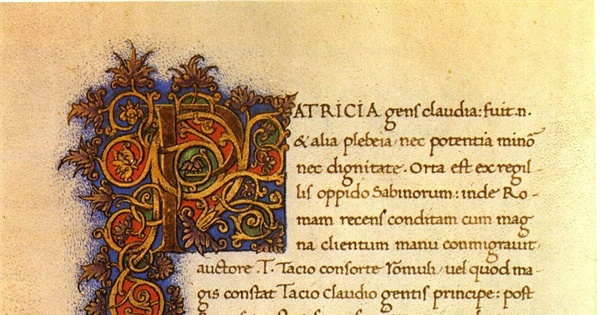 PATRICIA gens claudia: fuit.n.
& alia plebeia, nec potentia minõ
nec dignitate. Orta est ex regil/
lis oppido Sabinorum: inde Ro-
mam recens conditam cum mag
na clientum manu conmigrauit,
auctore. T. Tacio consorte Romuli, uel quod ma-
gis constat Tacio Claudio gentis principe: post